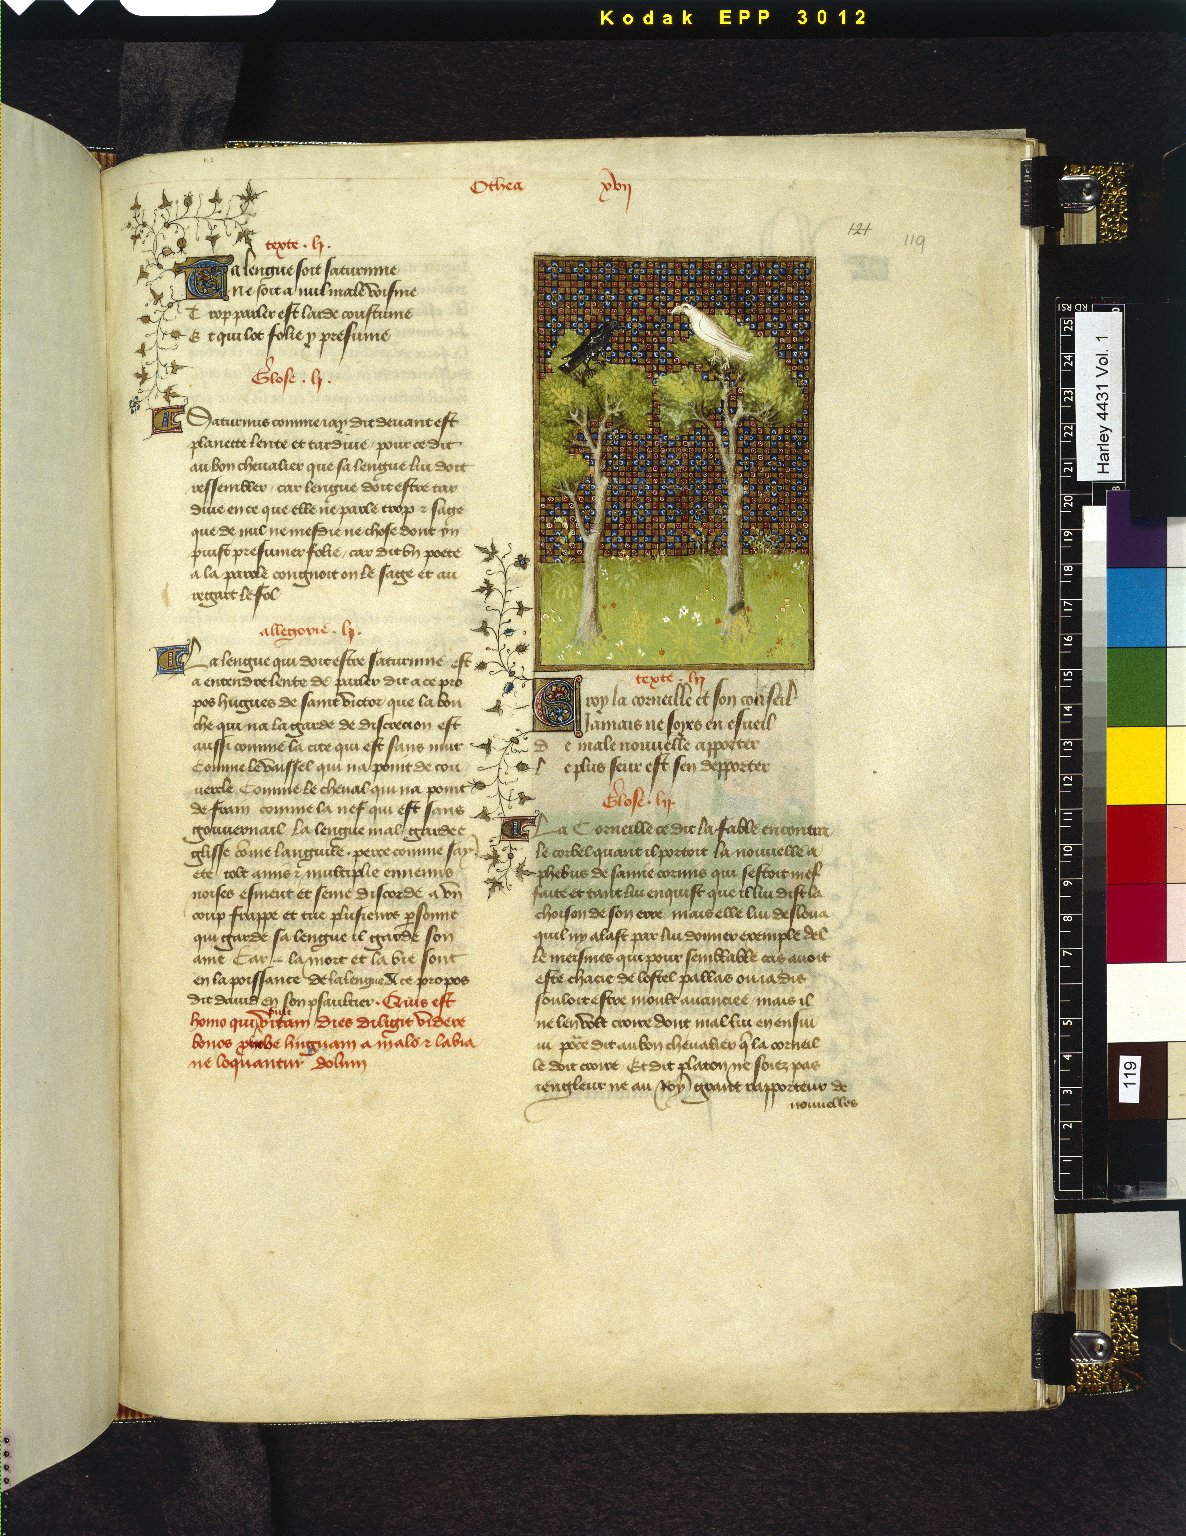 Kodak EPP 3012
Othea xvii
121 119
texte . lj .
Ta lengue soit saturnine
Ne soit a nul male voisine
Trop parler est laide coustume
Et qui lot folie y presume
Glose . lj .
Saturnus comme iay dit deuant est
planette lente et tardiue / pour ce dit
au bon cheualier que sa lengue lui doit
ressembler / car lengue doit estre tar
diue en ce que elle ne parle trop ⁊ sage
que de nul ne mesdie ne chose dont on
puist presumer folie / car dit vn poete
a la parole congnoit on le sage et au
regart le fol
allegorie . lj .
La lengue qui doit estre saturnine est
a entendre lente de parler dit a ce pro
pos hugues de saint victor que la bou
che qui na la garde de discrecion est
aussi comme la cite qui est sans mur
comme le vaissel qui na point de cou
uercle Comme le cheual qui na point
de frain comme la nef qui est sans
gouuernail La lengue mal gardee
glisse come languile . perce comme say
ete tolt amis ⁊ multiplie ennemis
noises esmeut et seme discorde a vn
coup frappe et tue plusieurs personne
qui garde sa lengue il garde son
ame Car la mort et la vie sont
en la poissance de la lengue A ce propos
dit dauid en son psaultier . Quis est
homo qui vult vitam / dies diligit videre
bonos prohibe linguam a malo ⁊ labia
ne loquantur dolum
texte . lij
Croy la corneille et son conseil
Jamais ne soyes en esueil
de male nouuelle apporter
le plus seur est sen depporter
Glose . lij .
La Corneille ce dit la fable encontra
le corbel quant il portoit la nouuelle a
phebus de samie corinis qui sestoit mef
faite et tant lui enquist que il lui dist la
choison de son erre mais elle lui desloua
quil ny alast par lui donner exemple del
le meismes qui pour semblable cas auoit
este chacie de lostel pallas ou iadis
souloit estre moult auanciee / mais il
ne len volt croire dont mal lui en ensui
ui . pource dit au bon cheualier que la corneil
le doit croire . Et dit platon ne soiez pas
iengleur ne au Roy grant rapporteur de
nouuelles
Harley 4431 Vol. 1
119